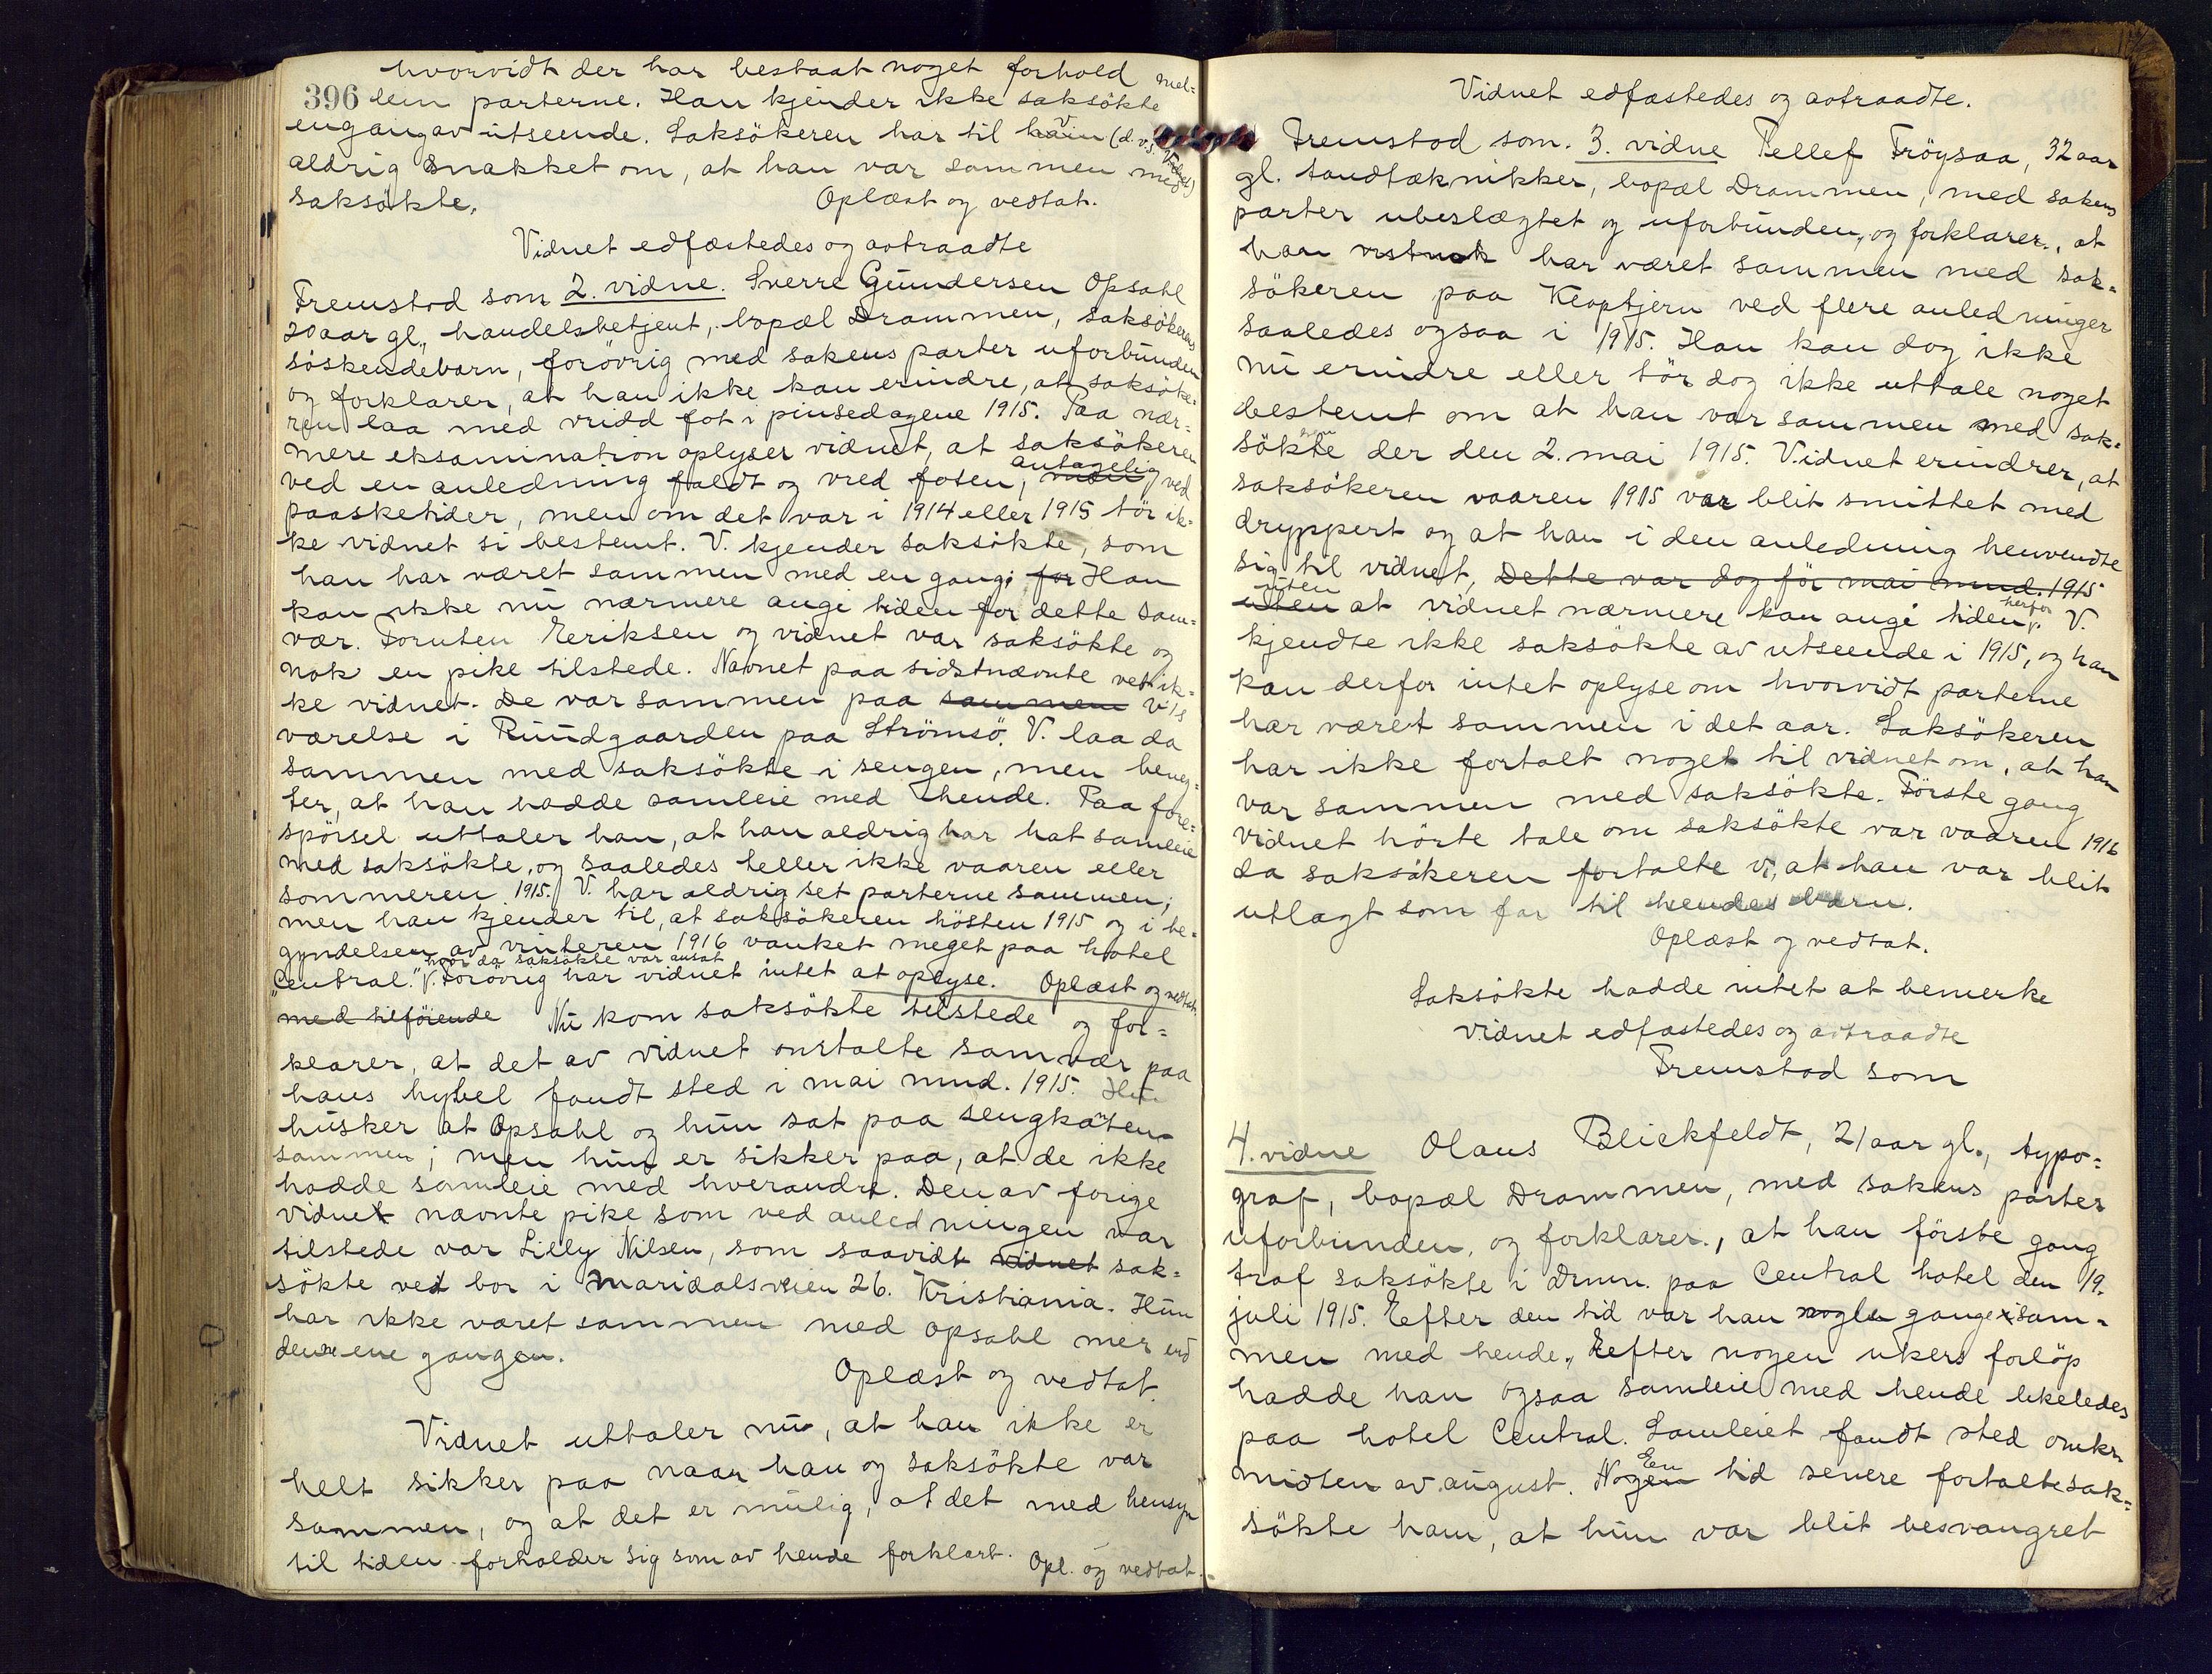 hvorvidt der har bestaat noget forhold mel-
396 lem parterne. Han kjender ikke saksökte
engang av utseende. Saksökeren har til ham (d.v.s. vidnet)
aldrig snakket om, at han var sammen med
saksökte. Oplæst og vedtat.
Vidnet edfæstedes og avtraadte
Fremstod som 2. vidne. Sverre Gundersen Opsahl
20 aar gl., handelsbetjent, bopæl Drammen, saksökerens
söskendebarn, forövrig med sakens parter uforbunden
og forklarer, at han ikke kan erindre, at saksöke-
ren laa med vridd fot i pinsedagene 1915. Paa nær-
mere eksamination oplyser vidnet, at saksökeren
ved en anledning faldt og vred foten, antagelig ved
paasketider, men om det var i 1914 eller 1915 tör ik-
ke vidnet si bestemt. V. kjender saksökte, som
han har været sammen med en gang; for Han
kan ikke nu nærmere angi tiden for dette sam-
vær. Foruten Eriksen og vidnet var saksökte og
nok en pike tilstede. Navnet paa sidstnævnte vet ik-
ke vidnet. De var sammen paa sammen v's
værelse i Rundgaarden paa Strömsö. V. laa da
sammen med saksökte i sengen, men beneg-
ter, at han hadde samleie med hende. Paa fore-
spörsel uttaler han, at han aldrig har hat samleie
med saksökte, og saaledes heller ikke vaaren eller
sommeren 1915. V. har aldrig set parterne sammen;
men han kjender til, at saksökeren hösten 1915 og i be-
gyndelsen av vinteren 1916 vanket meget paa hotel
"Central." hvor da saksökte var ansat V. Forövrig har vidnet intet at oplyse. Oplæst og vedtat.
med tilföiende Nu kom saksökte tilstede og for-
klarer, at det av vidnet omtalte samvær paa
hans hybel fandt sted i mai mnd. 1915. Hun
husker at Opsahl og hun sat paa sengkanten
sammen; men hun er sikker paa, at de ikke
hadde samleie med hverandre. Den av forige
vidnet nævnte pike som ved anledningen var
tilstede var Lilly Nilsen, som saavidt vidnet sak-
sökte vet bor i Maridalsveien 26. Kristiania. Hun
har ikke været sammen med Opsahl mer end
denne ene gangen.
Oplæst og vedtat.
Vidnet uttaler nu, at han ikke er
helt sikker paa naar han og saksökte var
sammen, og at det er mulig, at det med hensyn
til tiden forholder sig som av hende forklart. Opl. og vedtat.
Vidnet edfæstedes og avtraadte.
Fremstod som. 3. vidne Tellef Fröysaa, 32 aar
gl. tandtekniker, bopæl Drammen, med sakens
parter ubeslægtet og uforbunden, og forklarer, at
han vistnok har været sammen med sak-
sökeren paa Kloptjern ved flere anledninger
saaledes ogsaa i 1915. Han kan dog ikke
nu erindre eller tör dog ikke uttale noget
bestemt om at han var sammen med sak-
sökte der den 2. mai 1915. Vidnet erindrer, at
saksökeren vaaren 1915 var blit smittet med
dryppert og at han i den anledning henvendte
sig til vidnet, Dette var dog för mai mnd. 1915
uten uten at vidnet nærmere kan angi tiden herfor. V.
kjendte ikke saksökte av utseende i 1915, og han
kan derfor intet oplyse om hvorvidt parterne
har været sammen i det aar. Saksökeren
har ikke fortalt noget til vidnet om, at han
var sammen med saksökte. Förste gang
vidnet hörte tale om saksökte var vaaren 1916
da saksökeren fortalte v, at han var blit
utlagt som far til hendes barn.
Oplæst og vedtat.
Saksökte hadde intet at bemerke
Vidnet edfæstedes og avtraadte
Fremstod som
4. vidne Olaus Blickfeldt, 21 aar gl., typo-
graf, bopæl Drammen, med sakens parter
uforbunden, og forklarer, at han förste gang
traf saksökte i Drmn. paa Central hotel den 19.
juli 1915. Efter den tid var han nogle gange sam-
men med hende. Efter nogen ukers forlöp
hadde han ogsaa samleie med hende likeledes
paa hotel Central. Samleiet fandt sted omkr.
midten av august. Nogen En tid senere fortalte sak-
sökte ham, at hun var blit besvangret